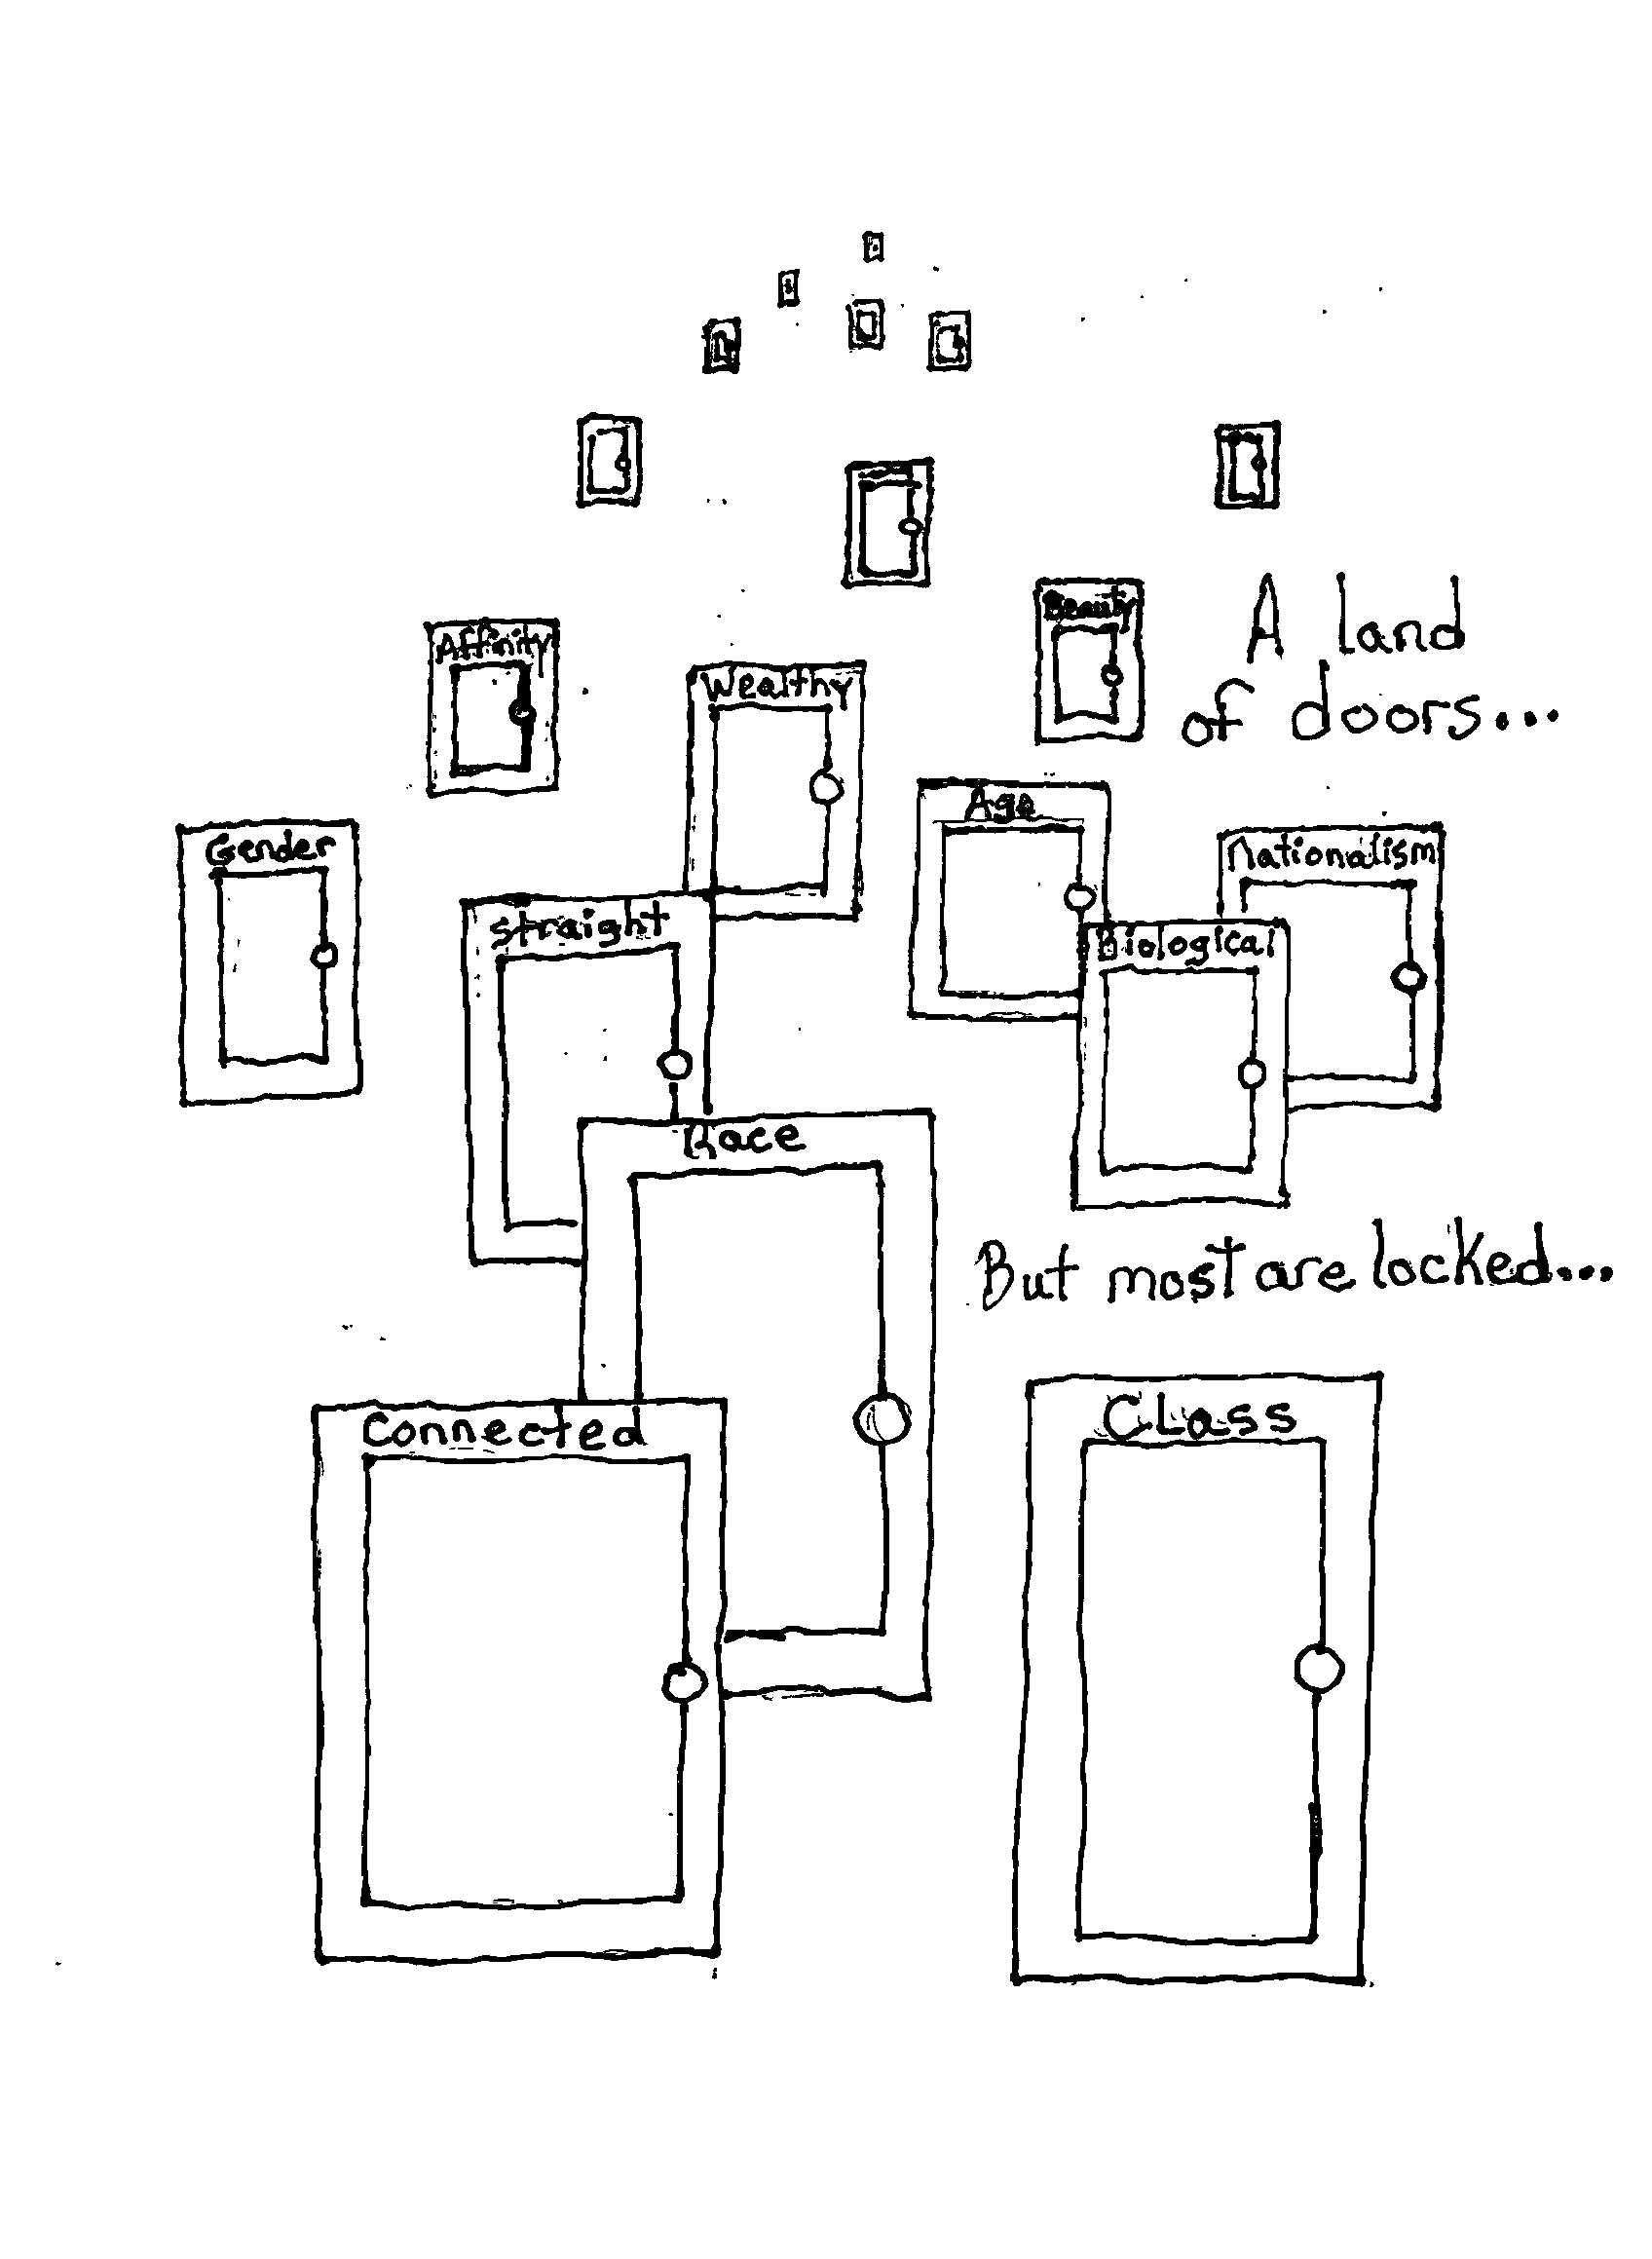 Beauty
A land
of doors...
Affinity
Wealthy
Age
Gender
Nationalism
Straight
Biological
Race
But most are locked...
Connected
CLass